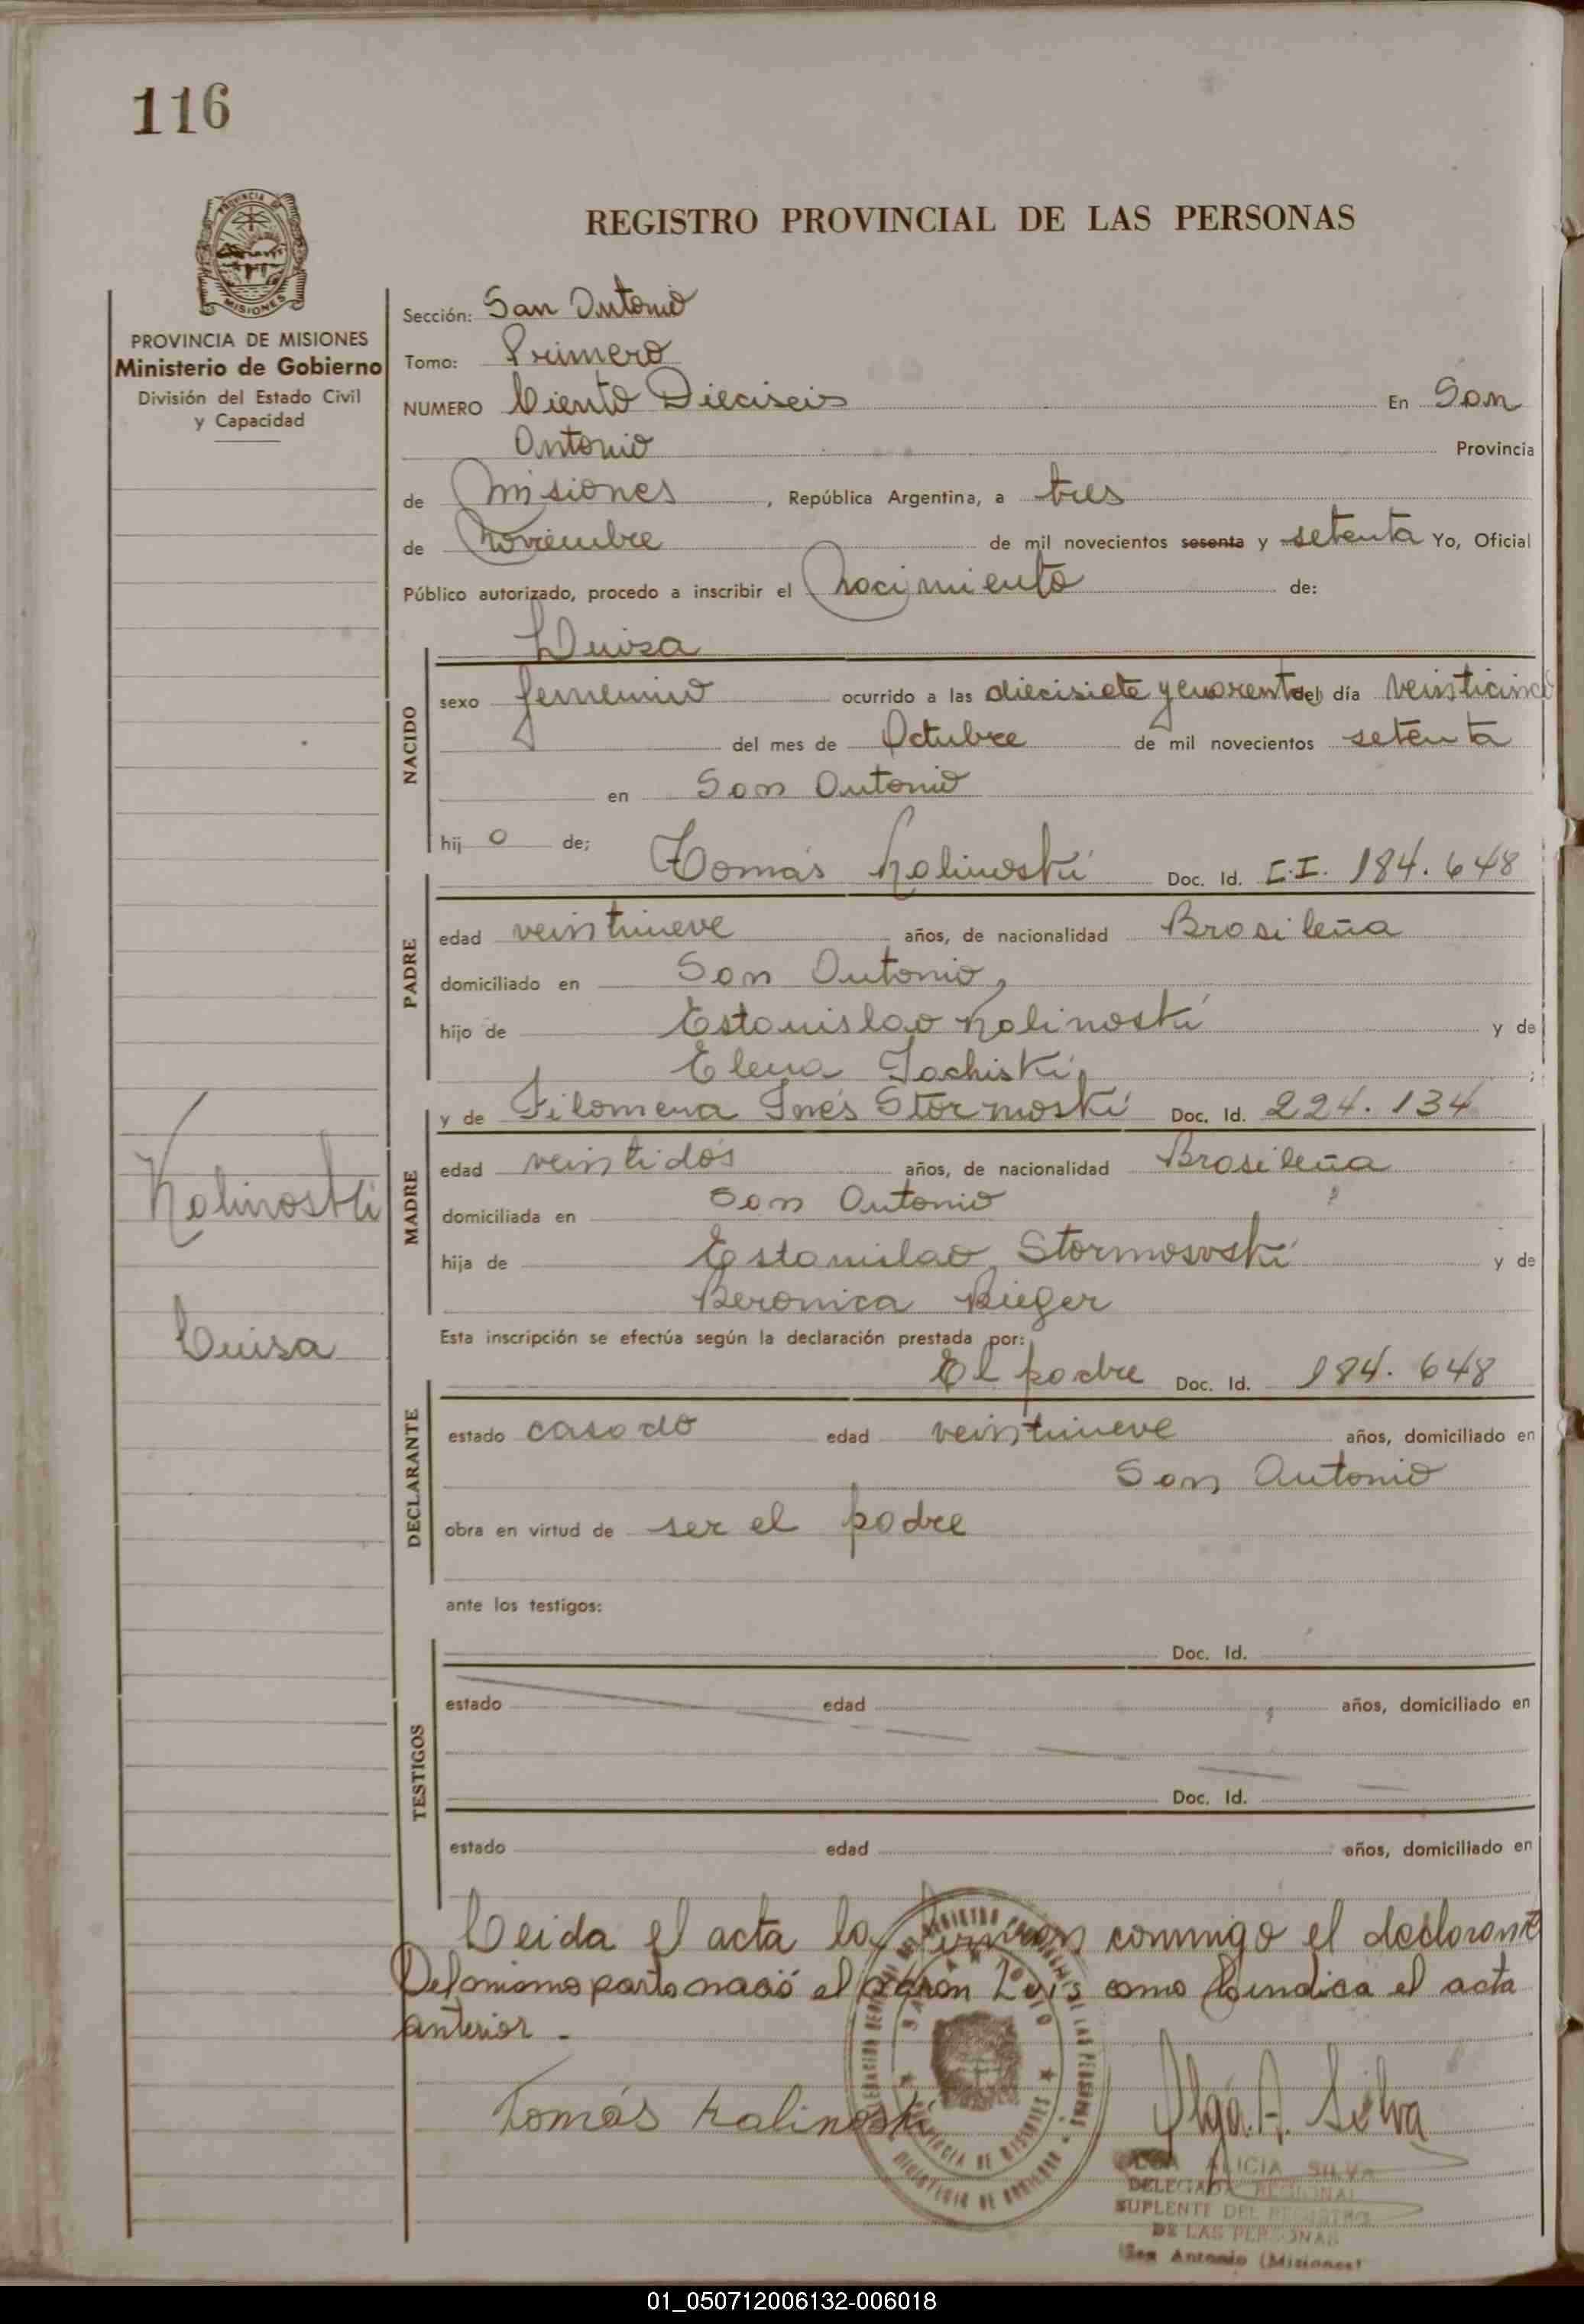 116
REGISTRO PROVINCIAL DE LAS PERSONAS
PROVINCIA DE MISIONES
Ministerio de Gobierno
División del Estado Civil
y Capacidad
Sección: San Antonio
Tomo: Primero
NUMERO Ciento Dieciseis En San
Antonio Provincia
de Misiones, República Argentina, a tres
de Noviembre de mil novecientos sesenta y setenta Yo, Oficial
Público autorizado, procedo a inscribir el Nacimiento de:
Luisa
NACIDO
sexo femenino ocurrido a las diecisiete y cuarenta del día veinticinco
del mes de Octubre de mil novecientos setenta
en San Antonio
hij o de;
Tomás Kalinoski Doc. Id. C.I. 184.648
PADRE
edad veintinueve años, de nacionalidad Brasileña
domiciliado en San Antonio,
hijo de Estanislao Kalinoski y de
Elena Jachiski;
y de Filomena Inés Stormoski Doc. Id. 224.134
MADRE
edad veintidós años, de nacionalidad Brasileña
domiciliada en San Antonio
hija de Estanislao Stormosvski y de
Beronica Rieger
Kalinoski
Luisa
Esta inscripción se efectúa según la declaración prestada por:
El padre Doc. Id. 184.648
DECLARANTE
estado casado edad veintinueve años, domiciliado en
San Antonio
obra en virtud de ser el padre
ante los testigos:
TESTIGOS
Doc. Id.
estado edad años, domiciliado en
Doc. Id.
estado edad años, domiciliado en
Leida el acta la firman conmigo el declarante
Del mismo parto nació el varon Luis como lo indica el acta
anterior.-
Tomás Kalinoski
Olga A. Silva
OLGA ALICIA SILVA
DELEGADA REGIONAL
SUPLENTE DEL REGISTRO
DE LAS PERSONAS
San Antonio (Misiones)
01_050712006132-006018